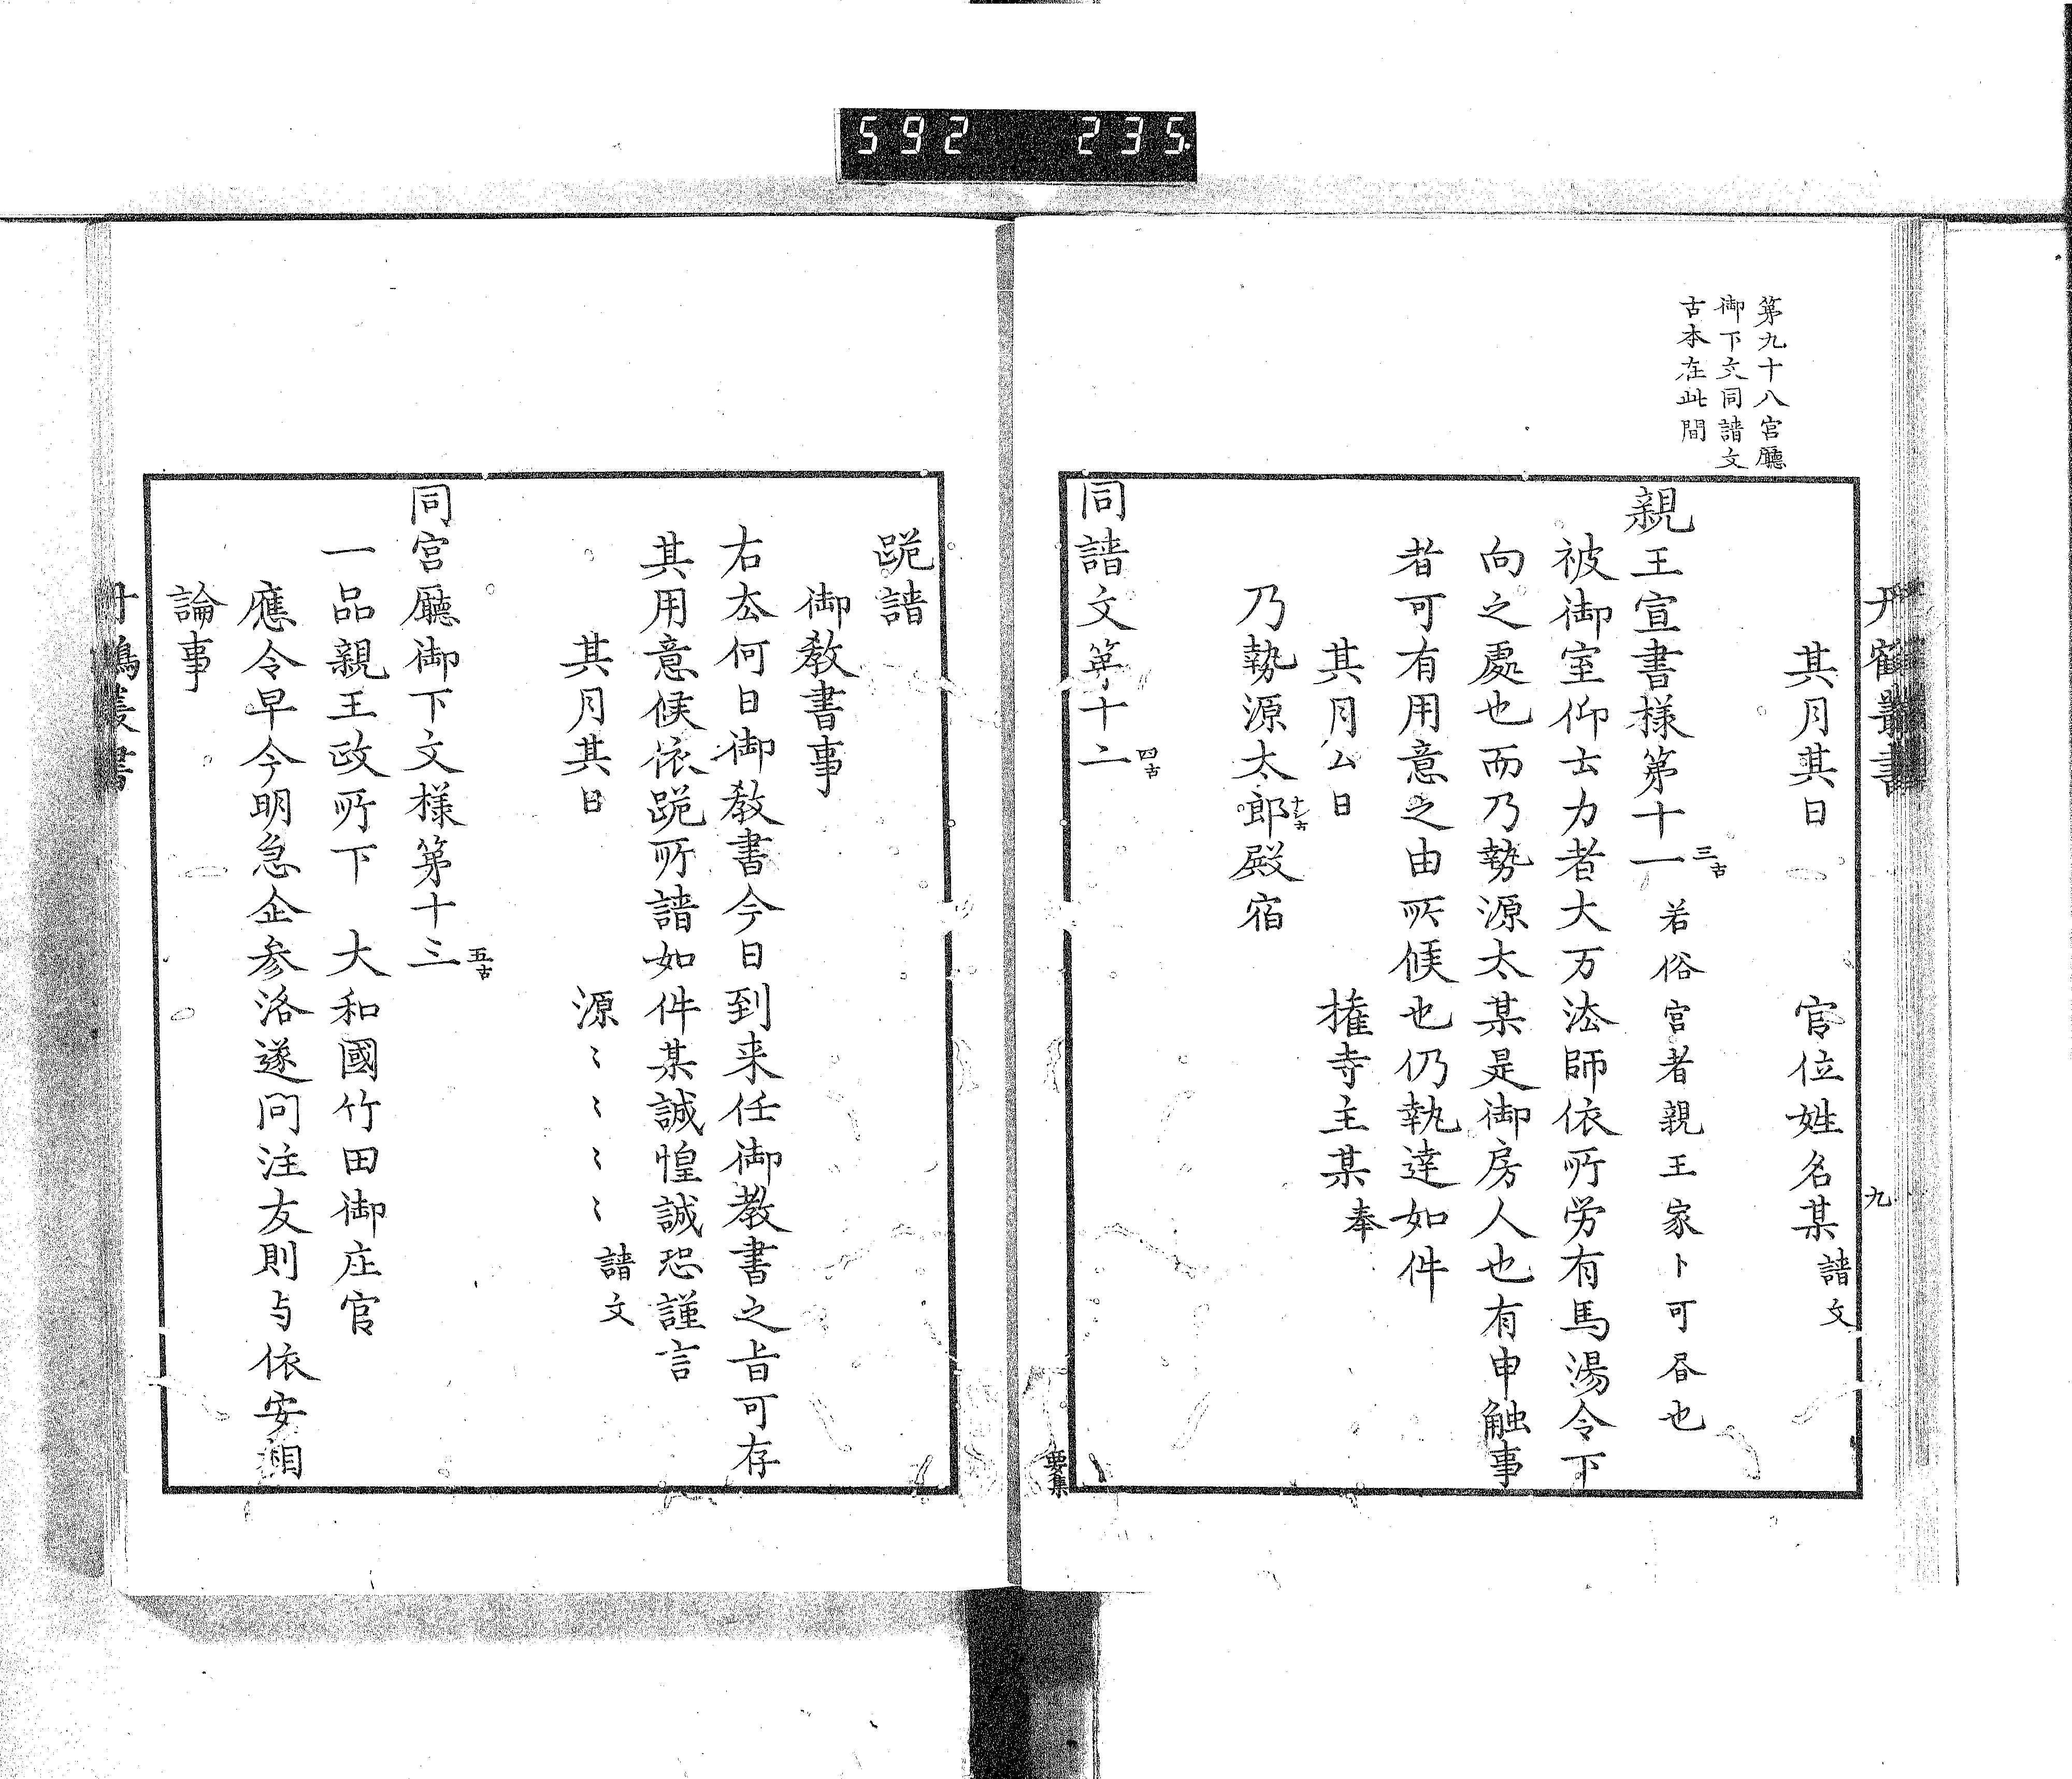 592 235
丹鶴叢書
九
第九十八宮廳
御下文同請文
古本在此間
其月其日 官位姓名某請文
親王宣書様第十一三古 若俗宮者親王家卜可昼也
被御室仰云力者大万法師依所労有馬湯令下
向之處也而乃勢源太某是御房人也有申触事
者可有用意之由所候也仍執達如件
其月ム日 権寺主某奉
乃勢源太郎殿宿
同請文第十二四古
要集
跪請
御教書事
右去何日御教書今日到来任御教書之旨可存
其用意候依跪所請如件某誠惶誠恐謹言
其月其日 源〻〻〻〻請文
同宮廳御下文様第十三五古
一品親王政所下 大和國竹田御庄官
應令早今明急企参洛遂問注友則与依安相
論事
丹鶴叢書